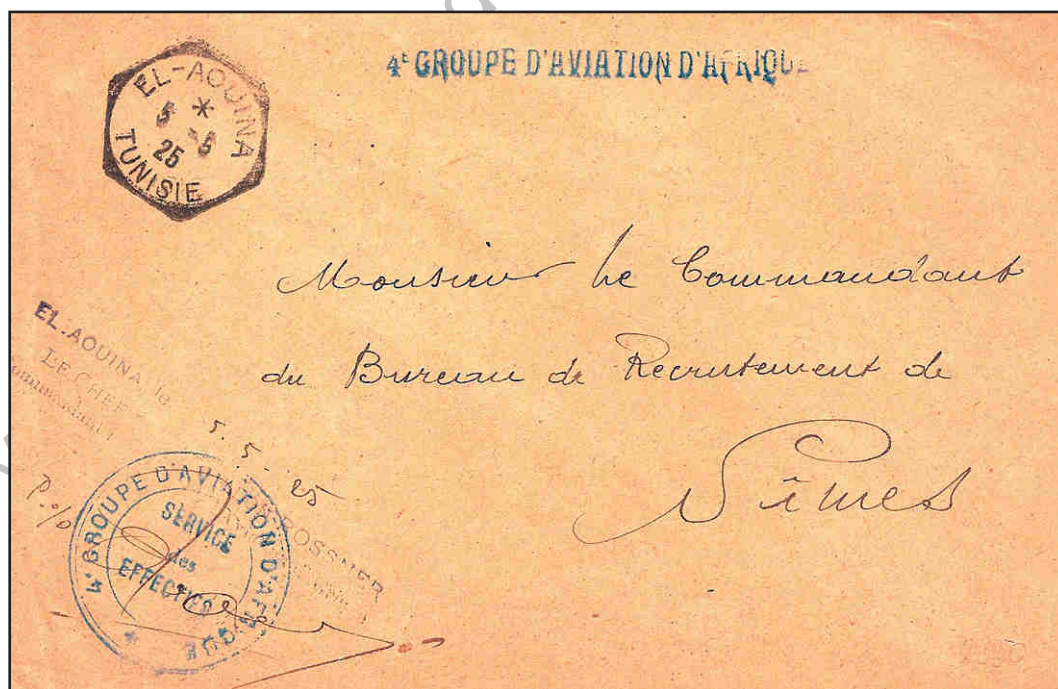 4e GROUPE D'AVIATION D'AFRIQUE
EL-AOUINA
*
5 -5
25
TUNISIE
Monsieur Le Commandant
du Bureau de Recrutement de
Nîmes
EL.AOUINA, le
LE CHEF
5. 5. 25
P. %
4e GROUPE D'AVIATION D'AFRIQUE
SERVICE
des
EFFECTIFS